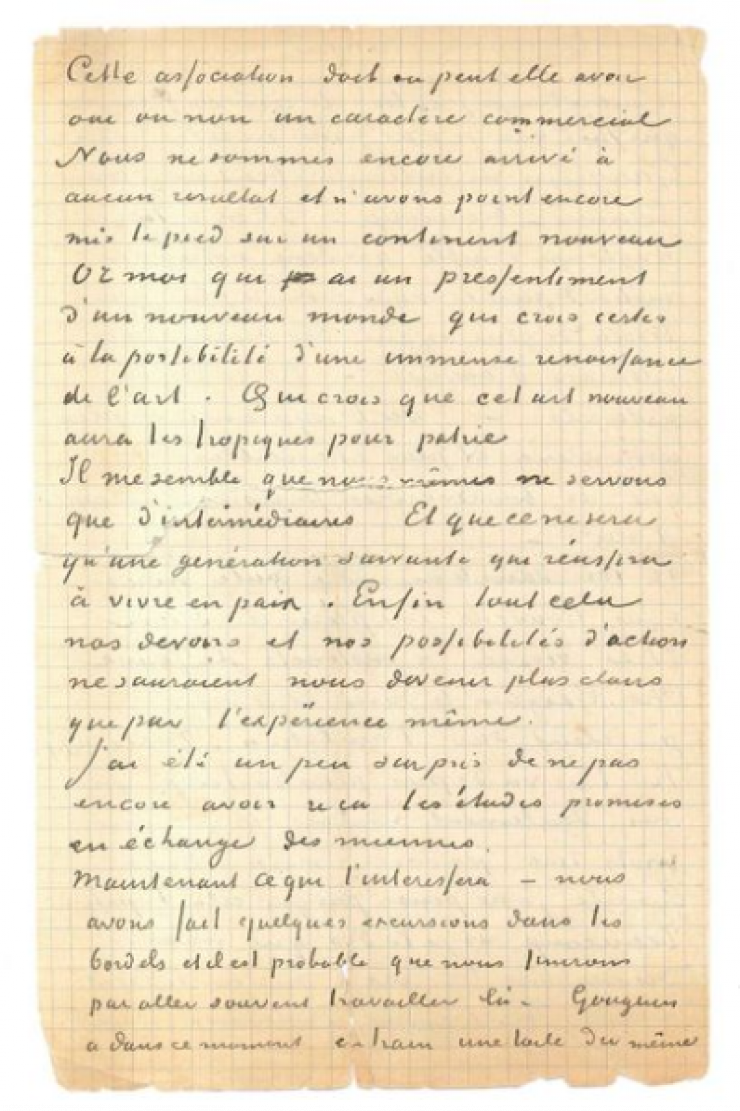 Cette association doit ou peut elle avoir
oui ou non un caractère commercial
Nous ne sommes encore arrivé à
aucun resultat et n'avons point encore
mis le pied sur un continent nouveau
Or moi qui ai un pressentiment
d'un nouveau monde qui crois certes
à la possibilité d'une immense renaissance
de l'art . Qui crois que cet art nouveau
aura les tropiques pour patrie
Il me semble que nous mêmes ne servons
que d'intermédiaires Et que ce ne sera
qu'une génération suivante qui réussira
à vivre en paix . Enfin tout cela
nos devoirs et nos possibilités d'action
ne sauraient nous devenir plus clairs
que par l'expérience même.
J'ai été un peu surpris de ne pas
encore avoir recu les études promises
en échange des miennes.
Maintenant ce qui t'interessera – nous
avons fait quelques excursions dans les
bordels et il est probable que nous finirons
par aller souvent travailler là – Gauguin
a dans ce moment en train une toile du même